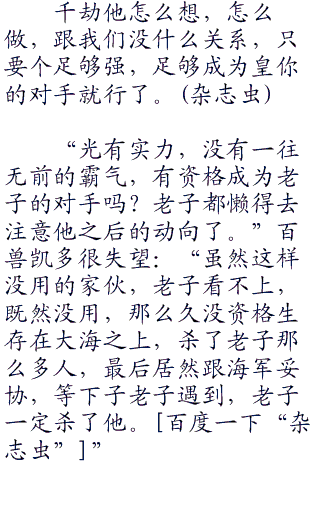 千劫他怎么想，怎么
做，跟我们没什么关系，只
要个足够强，足够成为皇你
的对手就行了。(杂志虫)
“光有实力，没有一往
无前的霸气，有资格成为老
子的对手吗？老子都懒得去
注意他之后的动向了。”百
兽凯多很失望：“虽然这样
没用的家伙，老子看不上，
既然没用，那么久没资格生
存在大海之上，杀了老子那
么多人，最后居然跟海军妥
协，等下子老子遇到，老子
一定杀了他。[百度一下“杂
志虫”]”